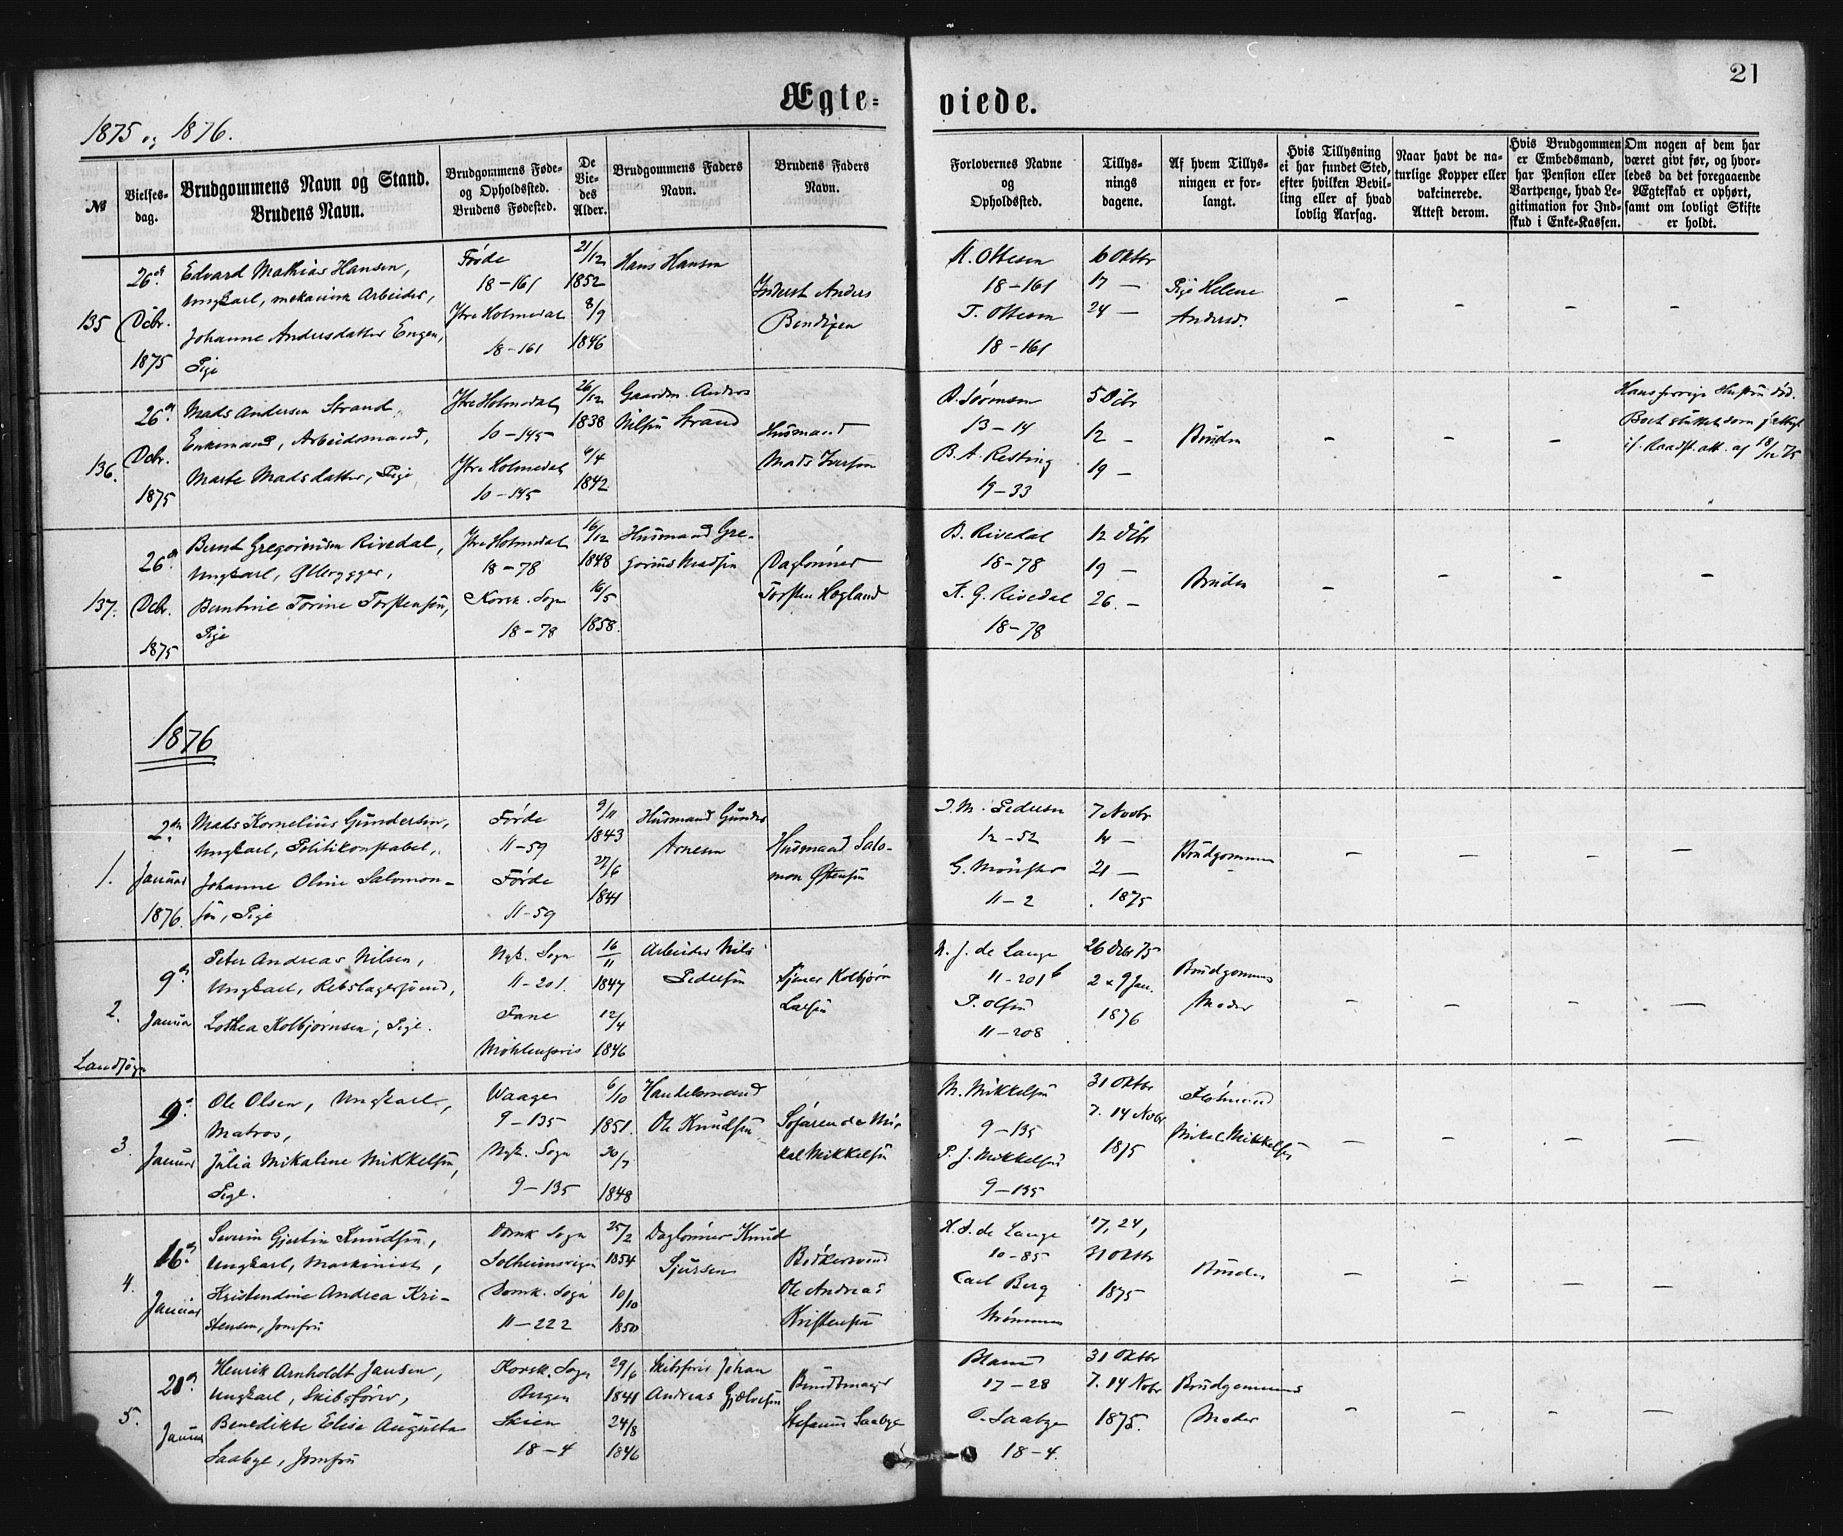 21
Ægte-
viede.
1875 og 1876.
№
Vielses-
dag.
Brudgommens Navn og Stand.
Brudens Navn.
Brudgommens Føde-
og Opholdssted.
Brudens Fødested.
De
Vie-
des
Alder.
Brudgommens Faders
Navn.
Brudens Faders
Navn.
Forlovernes Navne
og
Opholdssted.
Tillys-
nings
dagene.
Af hvem Tillys-
ningen er for-
langt.
Hvis Tillysning
ei har fundet Sted,
efter hvilken Bevil-
ling eller af hvad
lovlig Aarsag.
Naar havt de na-
turlige Kopper eller
vakcinerede.
Attest derom.
Hvis Brudgommen
er Embedsmand,
har Pension eller
Vartpenge, hvad Le-
gitimation for Ind-
skud i Enke-Kassen.
Om nogen af dem har
været givt før, og hvor-
ledes da det foregaaende
Ægteskab er ophørt,
samt om lovligt Skifte
er holdt.
135
26de
Dcbr.
1875
Edvard Mathias Hansen,
Ungkarl, mekanisk Arbeider,
Johanne Andersdatter Engen,
Pige
Førde
18-161
Ytre Holmedal
18-161
21/12
1852
8/9
1846
Hans Hansen
Inderst Anders
Bendixen
M. Ottesen
18-161
T. Ottesen
18-161
10 Oktbr
17 —
24 —
Pige Helene
Andersd.
— — — —
136.
26de
Dcbr.
1875
Mads Andersen Strand,
Enkemand, Arbeidsmand,
Marte Madsdatter, Pige
Ytre Holmedal
10-145
Ytre Holmedal
10-145
26/12
1838
6/4
1842
Gaardm. Anders
Nilsen Strand
Husmand
Mads Iversen
B. Sørensen
13-14
B. A. Resting
19-33
5 Dcbr
12 -
19 —
Bruden
— — —
Hans forrige Hustru død.
if. att. af 18/12 75
137.
26de
Dcbr.
1875
Bernt Gregoriusen Rivedal,
Ungkarl, Ølbrygger,
Berntine Torine Torstensen,
Pige
Ytre Holmedal
18-78
Korsk. Sogn
18-78
16/12
1848
16/5
1858.
Husmand Gre-
gorius Madsen
Daglønner
Torsten Hogland
B. Rivedal
18-78
A. G. Rivedal
18-78
12 Dcbr
19 —
26. —
Bruden
— — — —
1876
1.
2den
Januar
1876.
Mads Kornelius Gundersen,
Ungkarl, Politikonstabel,
Johanne Oline Salomon-
sen, Pige
Førde
11-59
Førde
11-59
9/11
1843
27/6
1841
Husmand Gunder
Arnesen
Husmand Salo-
mon Østensen
J. M. Pedersen
12-52
G. Mønster
11-2
7 Novbr
14 —
21 —
1875
Brudgommen
— — — —
2.
9de
Januar
Landsogn
Peter Andreas Nilsen,
Ungkarl, Rebslagersvend,
Lothea Kolbjørnsen, Pige.
Nyk. Sogn
11-201.
Fane
Møhlenpris
16/11
1847
12/4
1846
Arbeider Nils
Pedersen
Tjener Kolbjørn
Larsen
N. J. de Lange
11-201b
P. Olsen
11-208
26 Dcbr 75
2 & 9 Jan.
1876
Brudgommens
Moder
— — — —
3.
9de
Januar
Ole Olsen, Ungkarl,
Matros,
Julia Mikaline Mikkelsen,
Pige.
Waage
9-135
Nyk. Sogn
9-135
6/10
1851.
30/7
1848
Handelsmand
Ole Knudsen
Søfarende Mi-
kal Mikkelsen
M. Mikkelsen
9-135
P. J. Mikkelsen
9-135
31 Oktbr
7. 14 Novbr
1875
Mikal Mikkelsen
— — — —
4.
16de
Januar
Severin Gjertin Knudsen,
Ungkarl, Maskinist,
Kristendine Andrea Kri-
stensen, Jomfru
Domk. Sogn
Solheimsvigen
Domk. Sogn
11-222
25/2
1854
10/10
1850
Daglønner Knud
Sjursen
Bødkersvend
Ole Andreas
Kristensen
H. J. de Lange
10-85
Carl Berg
Strømmen
17, 24,
31 Oktbr
1875
Bruden
— — — —
5.
20de
Januar
Henrik Arnholdt Jansen,
Ungkarl, Skibsfører,
Benedikte Elise Augusta
Saabye, Jomfru
Korsk. Sogn
Bergen
Skien
18-4
29/6
1841
24/8
1846
Skibsfører Johan
Andreas Gjelvesen
Buntmager
Stefanus Saabye
Blauw
17-28
O. Saabye
18-4.
31 Oktbr
7. 14 Novbr
1875.
Brudgommens
Moder
— — — —